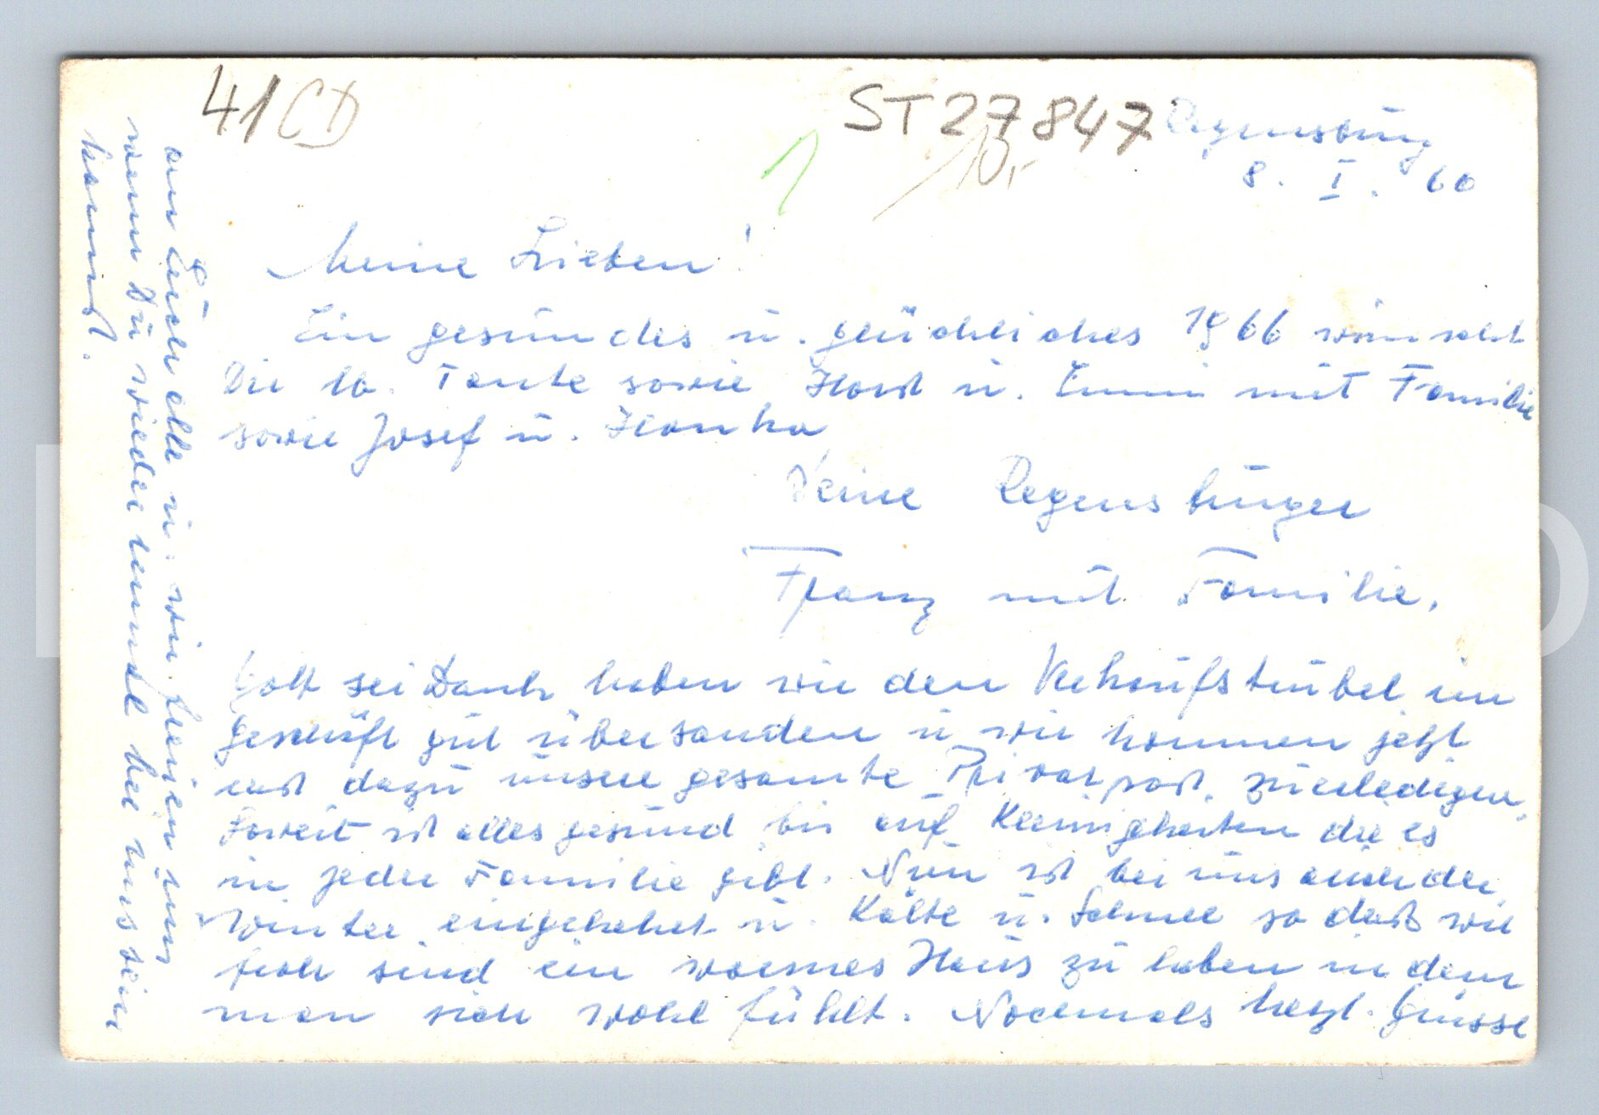 41 CD
ST27847
10,-
1
Regensburg
8. I. 66
Meine Lieben!
Ein gesundes u. glückliches 1966 wünscht
Dir lb. Tante sowie Horst u. Emmi mit Familie
sowie Josef u. Ilonka
Deine Regensburger
Franz mit Familie.
Gott sei Dank haben wir den Verkaufstrubel im
Geschäft gut überstanden u wir kommen jetzt
erst dazu unsere gesamte Privatpost zu erledigen,
Soweit ist alles gesund bis auf Kleinigkeiten die es
in jeder Familie gibt. Nun ist bei uns auch der
Winter eingekehrt u. Kälte u. Schnee so daß wir
froh sind ein warmes Haus zu haben in dem
man sich wohl fühlt. Nochmals herzl. Grüsse
an Euch alle u. wir freuen uns
wenn Du wieder einmal bei uns sein
kannst.